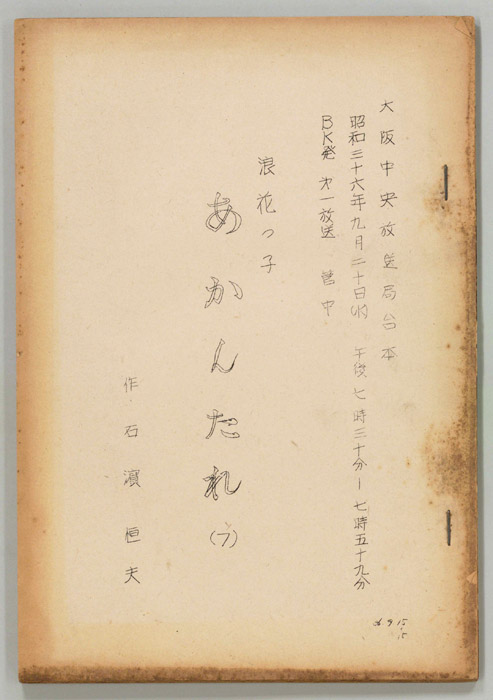 大阪中央放送局台本
昭和三十六年九月二十日(水) 午後七時三十分ー七時五十九分
BK発 才一放送 管中
浪花っ子
あかんたれ(7)
作 石濱恒夫